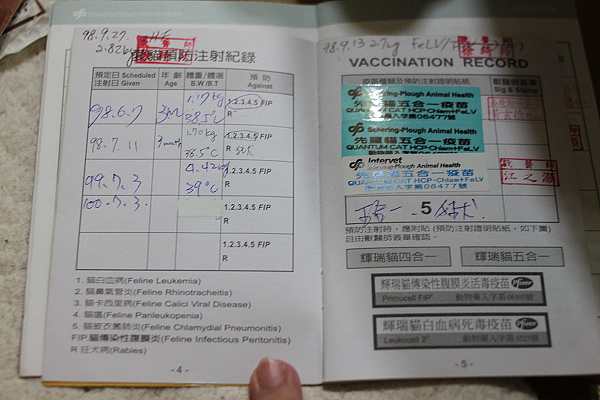 98.9.27.
2.82kg
貓預防注射紀錄
預定日 Scheduled
注射日 Given
年齡
Age
體重/體溫
B.W/B.T
預防
Against
98.6.7
1.17kg
38.5°C
1.2.3.4.5 FIP
R
98.7.11
3 month
1.70kg
38.5°C
1.2.3.4.5 FIP
R
99.7.3
39°C
1.2.3.4.5 FIP
R
100.7.3.
1.2.3.4.5 FIP
R
1.2.3.4.5 FIP
R
1. 貓白血病(Feline Leukemia)
2. 貓鼻氣管炎(Feline Rhinotracheitis)
3. 貓卡西里病(Feline Calici Viral Disease)
4. 貓瘟(Feline Panleukopenia)
5. 貓披衣菌肺炎(Feline Chlamydial Pneumonitis)
FIP.貓傳染性腹膜炎(Feline Infectious Peritonitis)
R.狂犬病(Rabies)
- 4 -
98.9.13 2.7kg FeLV/
VACCINATION RECORD
疫苗種類及預防注射證明貼紙
獸醫師簽章
Sig & Stamp
Schering-Plough Animal Health
先靈貓五合一疫苗
QUANTUM CAT HCP-Chlam+FeLV
動物藥入字第06477號
Schering-Plough Animal Health
先靈貓五合一疫苗
QUANTUM CAT HCP-Chlam+FeLV
動物藥入字第06477號
Intervet
Schering-Plough Animal Health
先靈貓五合一疫苗
QUANTUM CAT HCP-Chlam+FeLV
動物藥入字第06477號
5
預防注射時，應附貼 (預防注射證明貼紙，如下圖)
自由獸醫師簽章確認。
輝瑞貓四合一
輝瑞貓五合一
輝瑞貓傳染性腹膜炎活毒疫苗 Pfizer
Primucell FIP
輝瑞貓白血病死毒疫苗 Pfizer
Leukocell 2
- 5 -